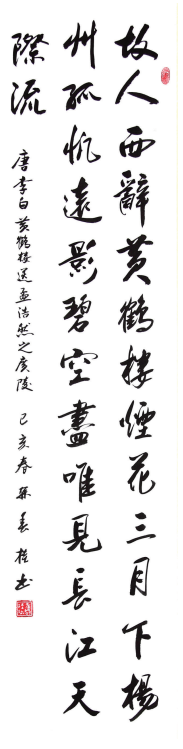 故人西辭黃鶴樓煙花三月下楊
州孤帆遠影碧空盡唯見長江天
際流
唐李白黃鶴樓送孟浩然之廣陵 己亥春 孫善桂書